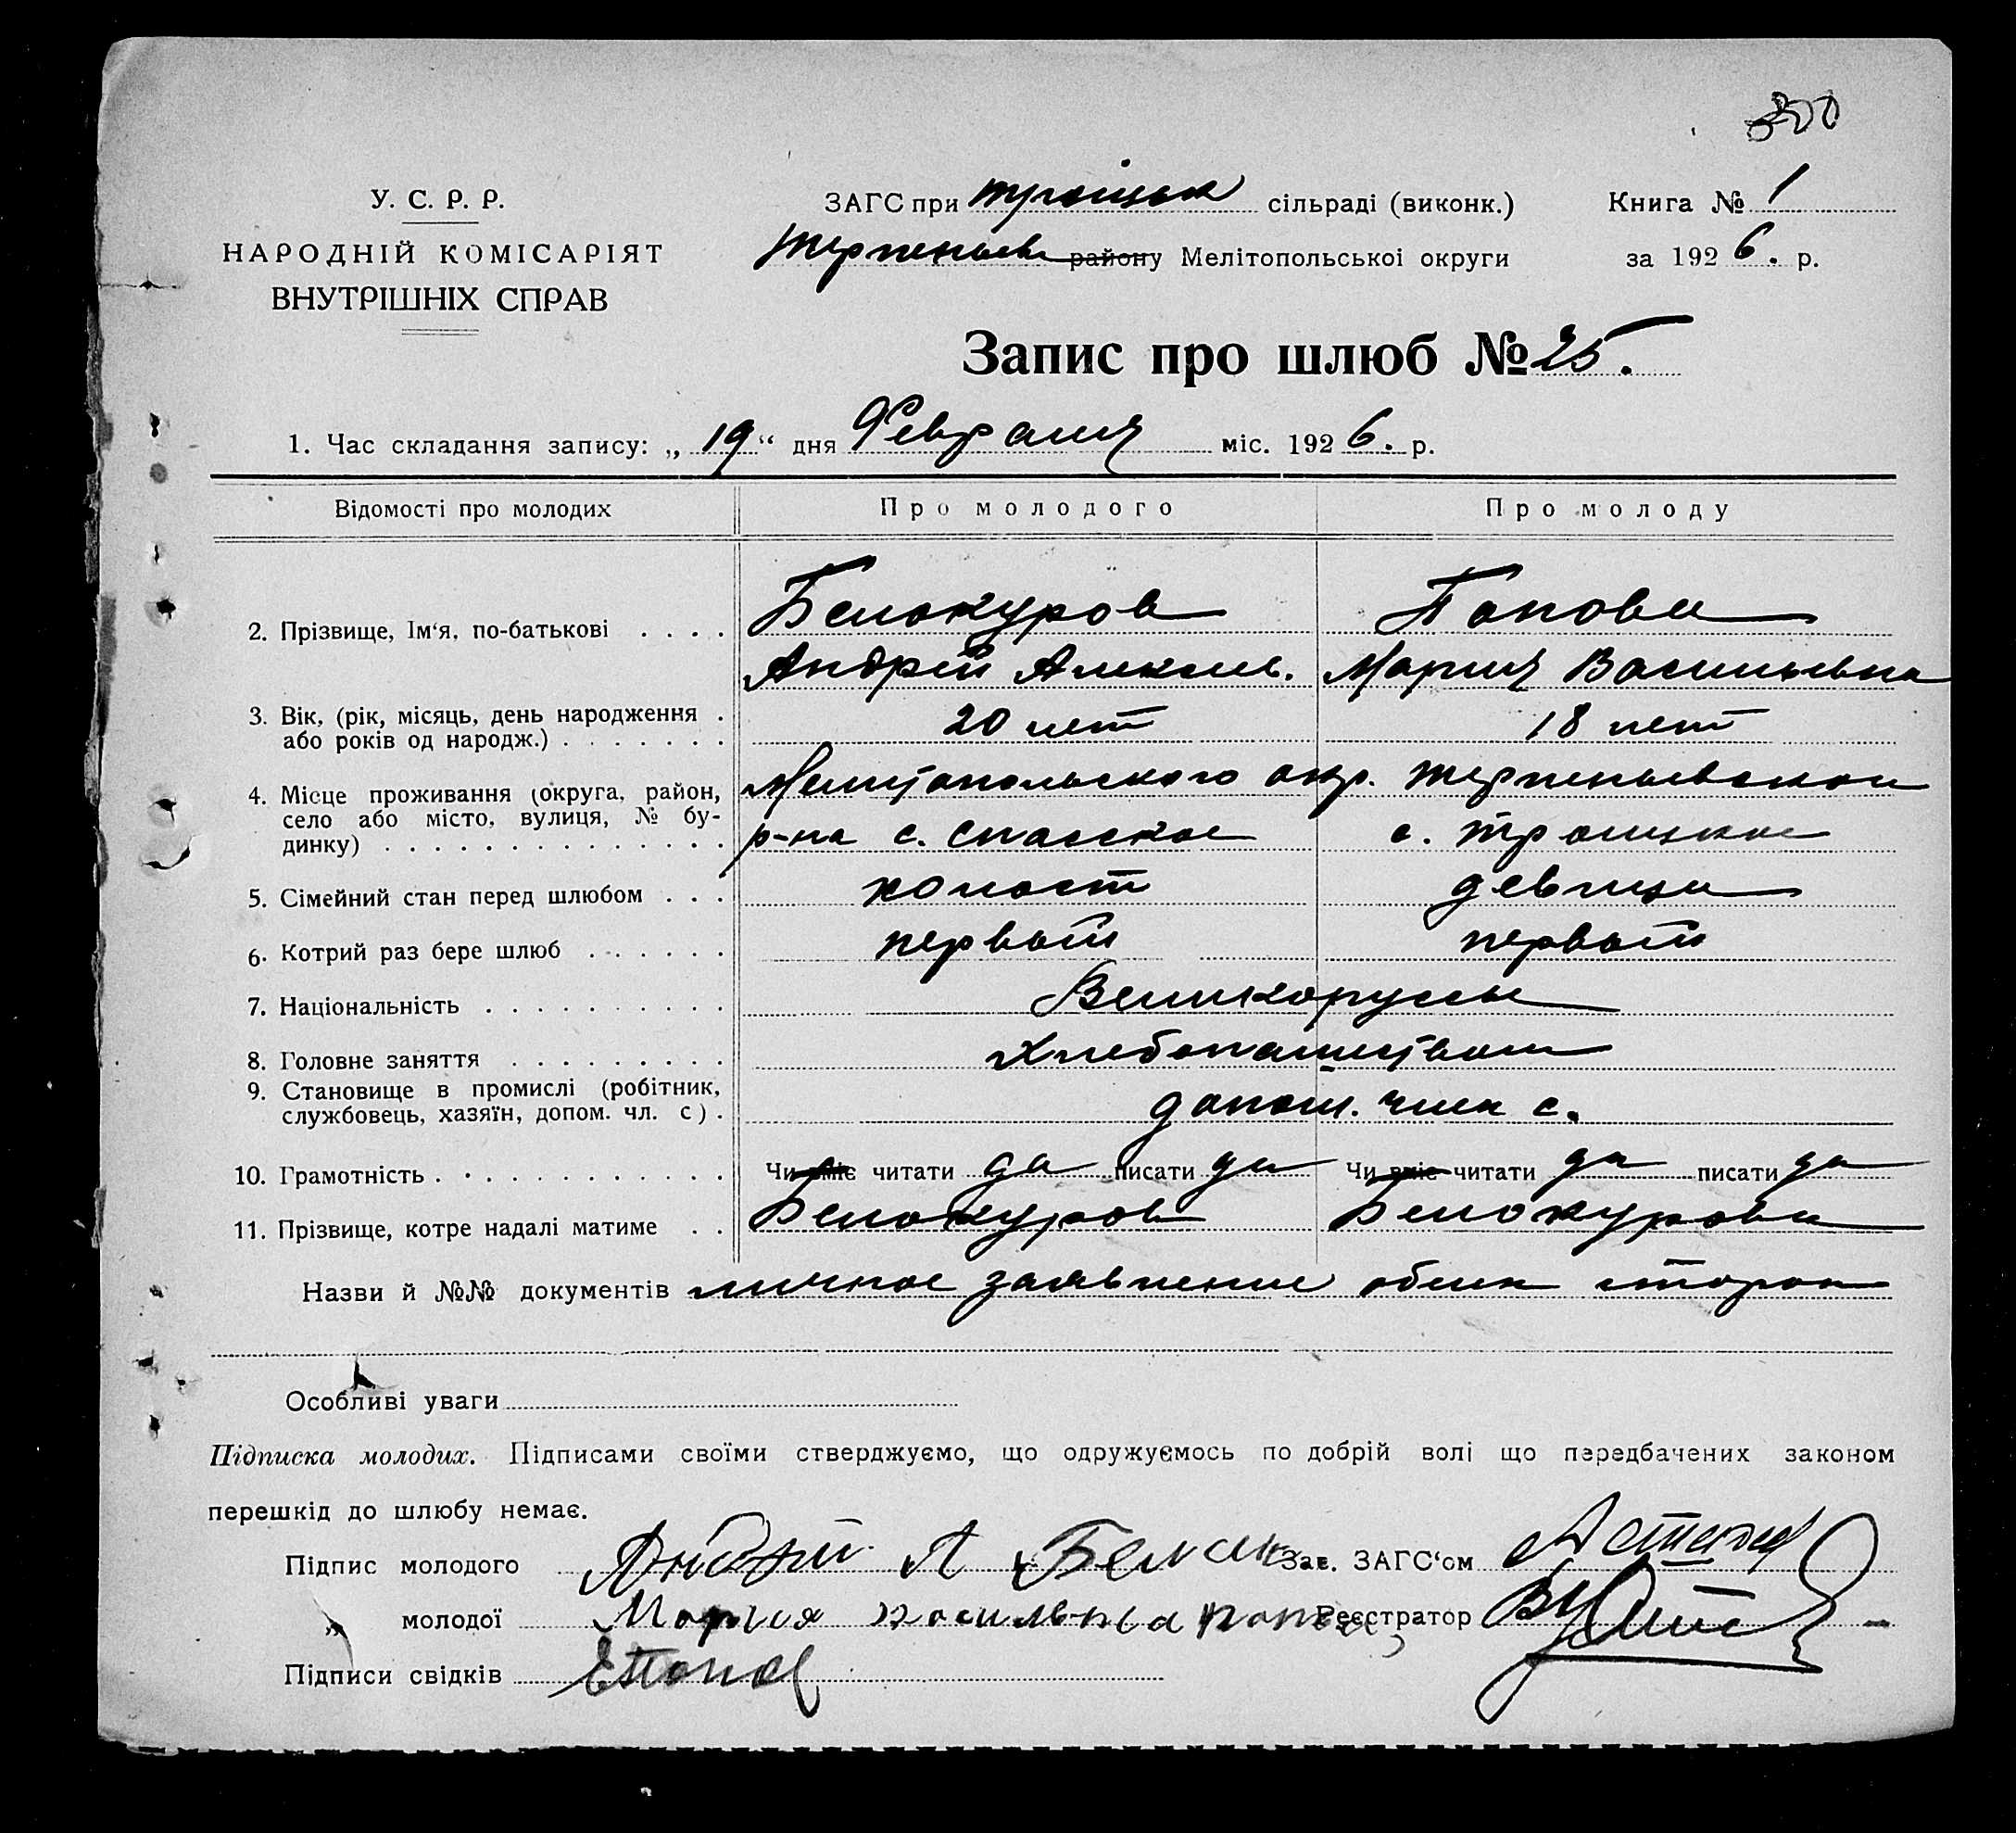 300
У. С. Р. Р.
НАРОДНІЙ КОМІСАРІЯТ
ВНУТРІШНІХ СПРАВ
ЗАГС при Троіцьк сільраді (виконк.)
Терпеньев району Мелітопольської округи
Книга № 1
за 1926. р.
Запис про шлюб № 25.
1. Час складання запису: „19“ дня Февраля міс. 1926. р.
Відомості про молодих Про молодого Про молоду
2. Прізвище, Ім'я, по-батькові . . . . Белокуров Попова
Андрей Алексеев. Мария Васильевна
3. Вік, (рік, місяць, день народження .
або років од народж.) . . . . . . . 20 лет 18 лет
4. Місце проживання (округа, район, Мелитопольского окр. Терпеньевской
село або місто, вулиця, № бу-
динку) . . . . . . . . . . . . . . р-на с. Спасское с. Троицкое
5. Сімейний стан перед шлюбом . . . холост девица
6. Котрий раз бере шлюб . . . . . . первый первый
7. Національність . . . . . . . . . . Великоруссы
8. Головне заняття . . . . . . . . . Хлебопашеством
9. Становище в промислі (робітник,
службовець, хазяїн, допом. чл. с) . допом. член с.
10. Грамотність . . . . . . . . . . . . Чи вміє читати да писати да Чи вміє читати да писати да
11. Прізвище, котре надалі матиме . . Белокуров Белокурова
Назви й №№ документів личное заявление обеих сторон
Особливі уваги
Підписка молодих. Підписами своїми стверджуємо, що одружуємось по добрій волі що передбачених законом
перешкід до шлюбу немає.
Підпис молодого Андрей А Белок Зав. ЗАГС'ом
„ молодої Мария Васильевна Попов Реєстратор
Підписи свідків ЕПопов